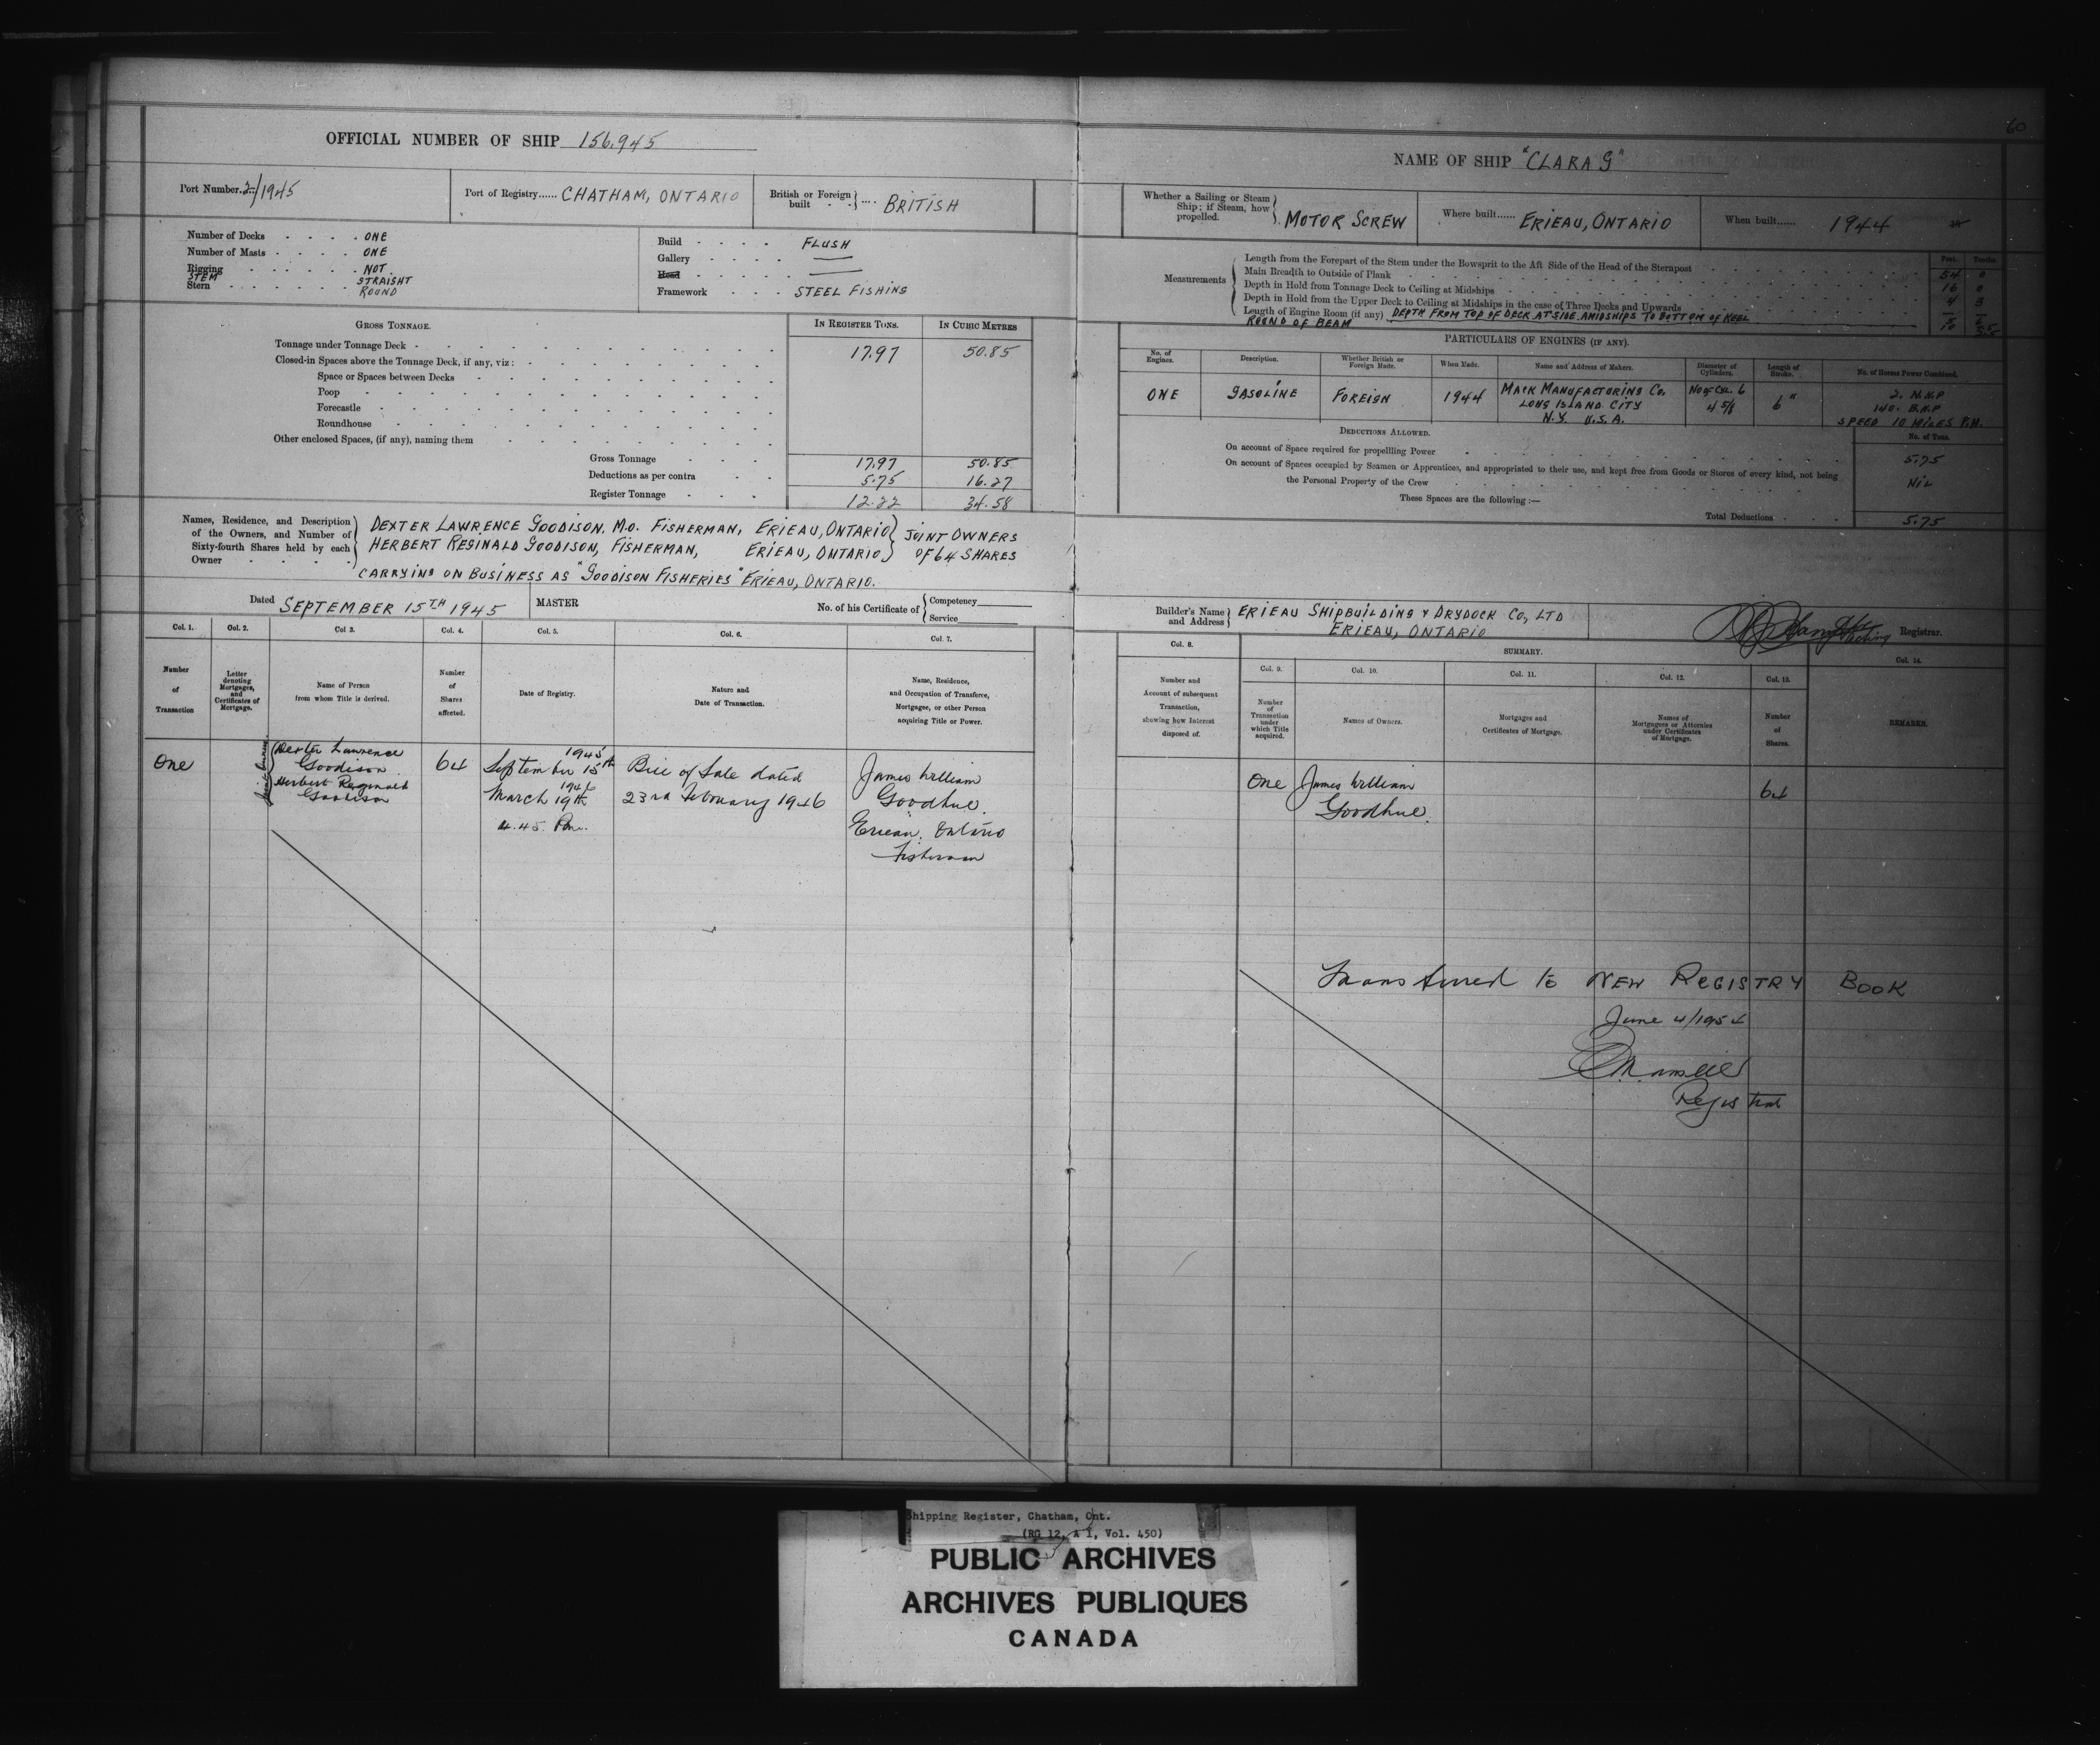 60
OFFICIAL NUMBER OF SHIP 156,945
Port Number 2/1945
Port of Registry...... CHATHAM, ONTARIO
British or Foreign built .... BRITISH
Number of Decks ONE
Number of Masts ONE
Rigging NOT
STEM STRAIGHT
Stern ROUND
Build FLUSH
Gallery —
Head —
Framework STEEL FISHING
GROSS TONNAGE.
IN REGISTER TONS.
IN CUBIC METRES
Tonnage under Tonnage Deck 17.97 50.85
Closed-in Spaces above the Tonnage Deck, if any, viz:
Space or Spaces between Decks
Poop
Forecastle
Roundhouse
Other enclosed Spaces, (if any), naming them
Gross Tonnage 17.97 50.85
Deductions as per contra 5.75 16.27
Register Tonnage 12.22 34.58
Names, Residence, and Description of the Owners, and Number of Sixty-fourth Shares held by each Owner
DEXTER LAWRENCE GOODISON, M.O. FISHERMAN, ERIEAU, ONTARIO } JOINT OWNERS
HERBERT REGINALD GOODISON, FISHERMAN, ERIEAU, ONTARIO } OF 64 SHARES
CARRYING ON BUSINESS AS "GOODISON FISHERIES" ERIEAU, ONTARIO.
Dated SEPTEMBER 15TH 1945
MASTER
No. of his Certificate of { Competency
Service
Col. 1. Col. 2. Col 3. Col. 4. Col. 5. Col. 6. Col. 7.
Number of Transaction
Letter denoting Mortgages, and Certificates of Mortgage.
Name of Person from whom Title is derived.
Number of Shares affected.
Date of Registry.
Nature and Date of Transaction.
Name, Residence, and Occupation of Transferee, Mortgagee, or other Person acquiring Title or Power.
One
Joint Owners
Dexter Lawrence
Goodison
Herbert Reginald
Goodison
64
1945
September 15th
1946
March 19th
4.45 Pm.
Bill of Sale dated
23rd February 1946
James William
Goodhue.
Erieau, Ontario
Fisherman
NAME OF SHIP "CLARA G"
Whether a Sailing or Steam Ship; if Steam, how propelled. MOTOR SCREW
Where built...... ERIEAU, ONTARIO
When built...... 1944
Measurements
Feet. Tenths.
Length from the Forepart of the Stem under the Bowsprit to the Aft Side of the Head of the Sternpost 54 0
Main Breadth to Outside of Plank 16 0
Depth in Hold from Tonnage Deck to Ceiling at Midships 4 3
Depth in Hold from the Upper Deck to Ceiling at Midships in the case of Three Decks and Upwards —
Length of Engine Room (if any) DEPTH FROM TOP OF DECK AT SIDE AMIDSHIPS TO BOTTOM OF KEEL
ROUND OF BEAM
PARTICULARS OF ENGINES (IF ANY).
No. of Engines.
Description.
Whether British or Foreign Made.
When Made.
Name and Address of Makers.
Diameter of Cylinders.
Length of Stroke.
No. of Horses Power Combined.
ONE
GASOLINE
FOREIGN
1944
MACK MANUFACTURING CO.
LONG ISLAND CITY
N.Y. U.S.A.
NO OF CYL. 6
4 5/8
6"
2. N.H.P
140. B.H.P
SPEED 10 MILES P.H.
DEDUCTIONS ALLOWED.
No. of Tons.
On account of Space required for propelling Power 5.75
On account of Spaces occupied by Seamen or Apprentices, and appropriated to their use, and kept free from Goods or Stores of every kind, not being
the Personal Property of the Crew NIL
These Spaces are the following:—
Total Deductions 5.75
Builder's Name and Address } ERIEAU SHIPBUILDING & DRYDOCK CO, LTD
ERIEAU, ONTARIO
Acting Registrar.
SUMMARY.
Col. 8. Col. 9. Col. 10. Col. 11. Col. 12. Col. 13. Col. 14.
Number and Account of subsequent Transaction, showing how Interest disposed of.
Number of Transaction under which Title acquired.
Names of Owners.
Mortgages and Certificates of Mortgage.
Names of Mortgagees or Attornies under Certificates of Mortgage.
Number of Shares.
REMARKS.
One James William 64
Goodhue.
Transferred to NEW REGISTRY BOOK
June 4/1954
Registrar
Shipping Register, Chatham, Ont.
(RG 12, A 1, Vol. 450)
PUBLIC ARCHIVES
ARCHIVES PUBLIQUES
CANADA